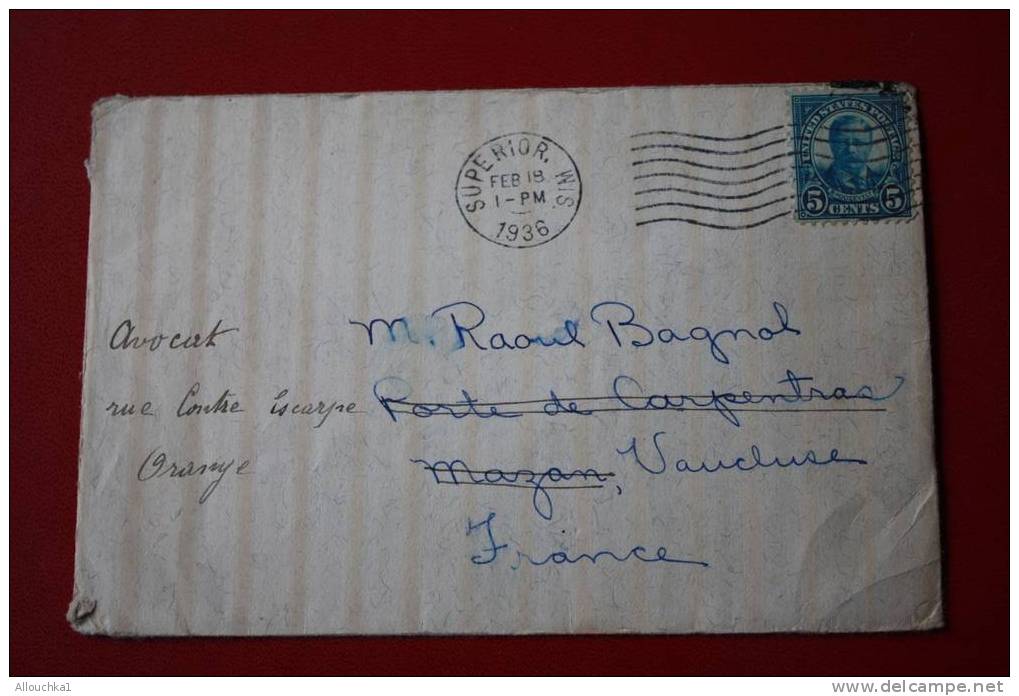 UNITED STATES POSTAGE
5 CENTS 5
SUPERIOR, WIS.
FEB 18
1-PM
1936
M. Raoul Bagnol
Avocat
Porte de Carpentras
rue Contre Escarpe
Mazan, Vaucluse
Orange
France
Allouchka1
www.delcampe.net